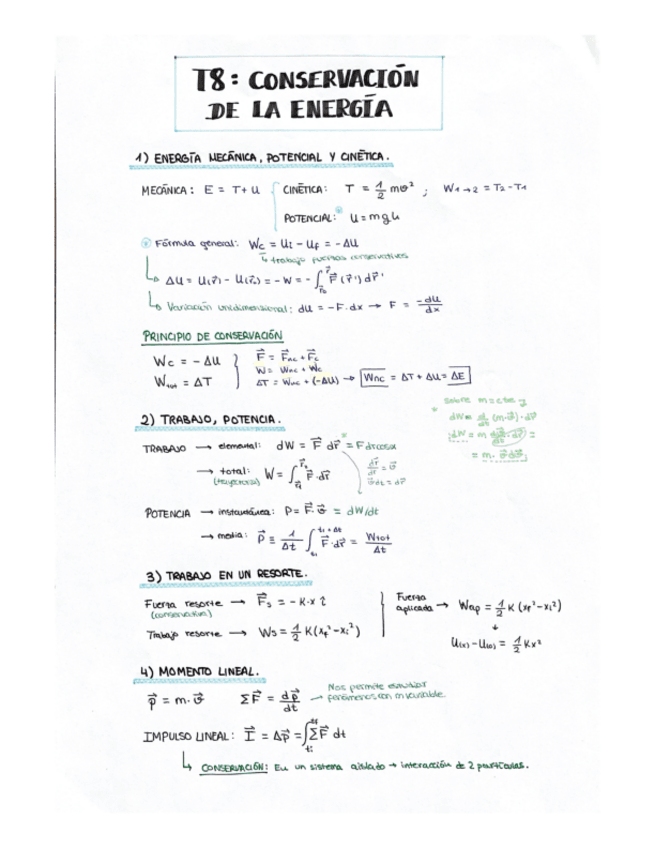 T8: CONSERVACIÓN
DE LA ENERGÍA
1) ENERGÍA MECÁNICA, POTENCIAL Y CINÉTICA.
MECÁNICA: E = T+U { CINÉTICA: T = 1/2 mv² ; W1→2 = T2-T1
POTENCIAL:* U = mgh
* Fórmula general: Wc = Ui - Uf = -ΔU
↳ trabajo fuerzas conservativas
↳ ΔU = U(r⃗) - U(r⃗₀) = -W = -∫ F⃗(r⃗')dr⃗'
↳ Variación unidimensional: dU = -F·dx → F = -dU/dx
PRINCIPIO DE CONSERVACIÓN
Wc = -ΔU } F⃗ = F⃗nc + F⃗c
W = Wnc + Wc
Wtot = ΔT ΔT = Wnc + (-ΔU) → Wnc = ΔT + ΔU = ΔE
sobre m = cte y
* dW = d/dt (m·v⃗)·dr⃗
dW = m dv⃗/dt·dr⃗ =
= m·v⃗dv⃗
2) TRABAJO, POTENCIA.
TRABAJO → elemental: dW = F⃗ dr⃗* = F dr cosα
→ total: W = ∫ F⃗·dr⃗
(trayectoria)
dr⃗/dt = v⃗
v⃗dt = dr⃗
POTENCIA → instantánea: P = F⃗·v⃗ = dW/dt
→ media: P = 1/Δt ∫ F⃗·dr⃗ = Wtot/Δt
3) TRABAJO EN UN RESORTE.
Fuerza resorte → F⃗s = -K·x î
(conservativa)
Trabajo resorte → Ws = 1/2 K(xf² - xi²)
Fuerza
aplicada → Wap = 1/2 K (xf² - xi²)
+
U(x) - U(0) = 1/2 Kx²
4) MOMENTO LINEAL.
p⃗ = m·v⃗ ΣF⃗ = dp⃗/dt → Nos permite estudiar
fenómenos con m variable.
IMPULSO LINEAL: I⃗ = Δp⃗ = ∫ΣF⃗ dt
↳ CONSERVACIÓN: En un sistema aislado → interacción de 2 partículas.